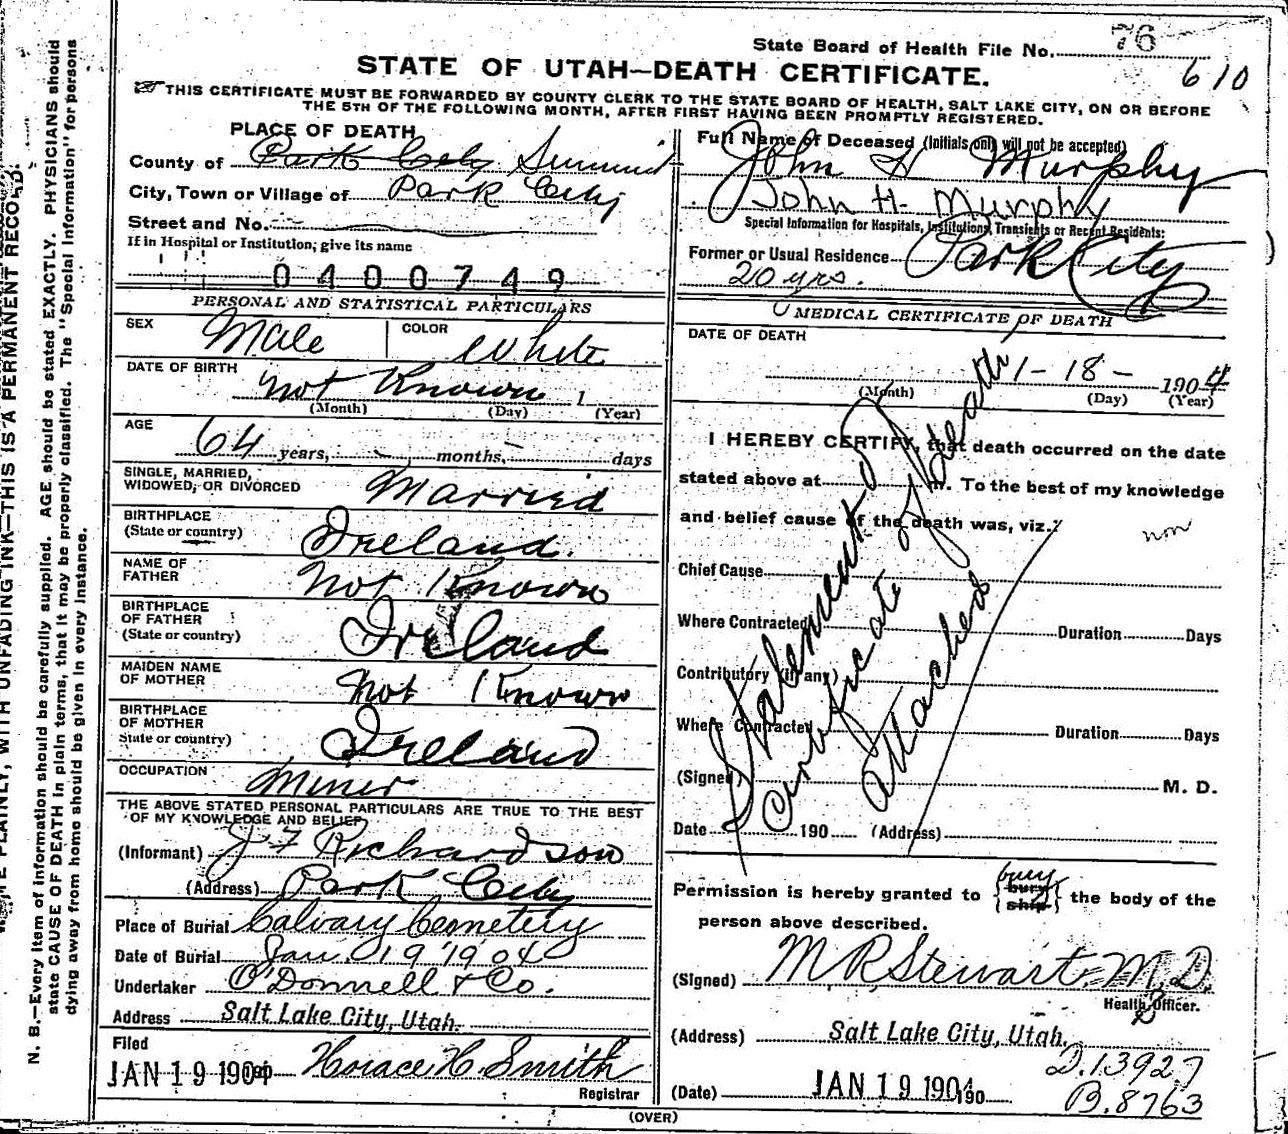 State Board of Health File No. 76
610
STATE OF UTAH—DEATH CERTIFICATE.
THIS CERTIFICATE MUST BE FORWARDED BY COUNTY CLERK TO THE STATE BOARD OF HEALTH, SALT LAKE CITY, ON OR BEFORE
THE 5TH OF THE FOLLOWING MONTH, AFTER FIRST HAVING BEEN PROMPTLY REGISTERED.
PLACE OF DEATH
County of Park City Summit
City, Town or Village of Park City
Street and No.
If in Hospital or Institution, give its name
0400749
PERSONAL AND STATISTICAL PARTICULARS
SEX Male COLOR White
DATE OF BIRTH Not Known 1
(Month) (Day) (Year)
AGE
64 years, — months, — days
SINGLE, MARRIED,
WIDOWED, OR DIVORCED Married
BIRTHPLACE
(State or country) Ireland.
NAME OF
FATHER Not Known
BIRTHPLACE
OF FATHER
(State or country) Ireland
MAIDEN NAME
OF MOTHER Not Known
BIRTHPLACE
OF MOTHER
State or country) Ireland
OCCUPATION Miner
THE ABOVE STATED PERSONAL PARTICULARS ARE TRUE TO THE BEST
OF MY KNOWLEDGE AND BELIEF
(Informant) J F Richardson
(Address) Park City
Place of Burial Calvary Cemetery
Date of Burial Jan. 19 1904
Undertaker O'Donnell & Co.
Address Salt Lake City, Utah.
Filed
JAN 19 1904 Horace H. Smith
Registrar
Full Name of Deceased (Initials only will not be accepted)
John H Murphy
John H. Murphy
Special Information for Hospitals, Institutions, Transients or Recent Residents:
Former or Usual Residence Park City
20 yrs.
MEDICAL CERTIFICATE OF DEATH
DATE OF DEATH
1-18- 1904
(Month) (Day) (Year)
I HEREBY CERTIFY, that death occurred on the date
stated above at m. To the best of my knowledge
and belief cause of the death was, viz.:
non
Chief Cause
Where Contracted Duration Days
Contributory (if any)
Where Contracted Duration Days
(Signed) M. D.
Date 190 (Address)
Statement &
Certificate of Death
Attached
Permission is hereby granted to {bury ship} the body of the
bury
person above described.
(Signed) M R Stewart, M.D.
Health Officer.
(Address) Salt Lake City, Utah.
D.13927
(Date) JAN 19 1904 190
B.8763
(OVER)
PLAINLY, WITH UNFADING INK—THIS IS A PERMANENT RECORD.
N. B.—Every item of information should be carefully supplied. AGE should be stated EXACTLY. PHYSICIANS should
state CAUSE OF DEATH in plain terms, that it may be properly classified. The "Special Information" for persons
dying away from home should be given in every instance.